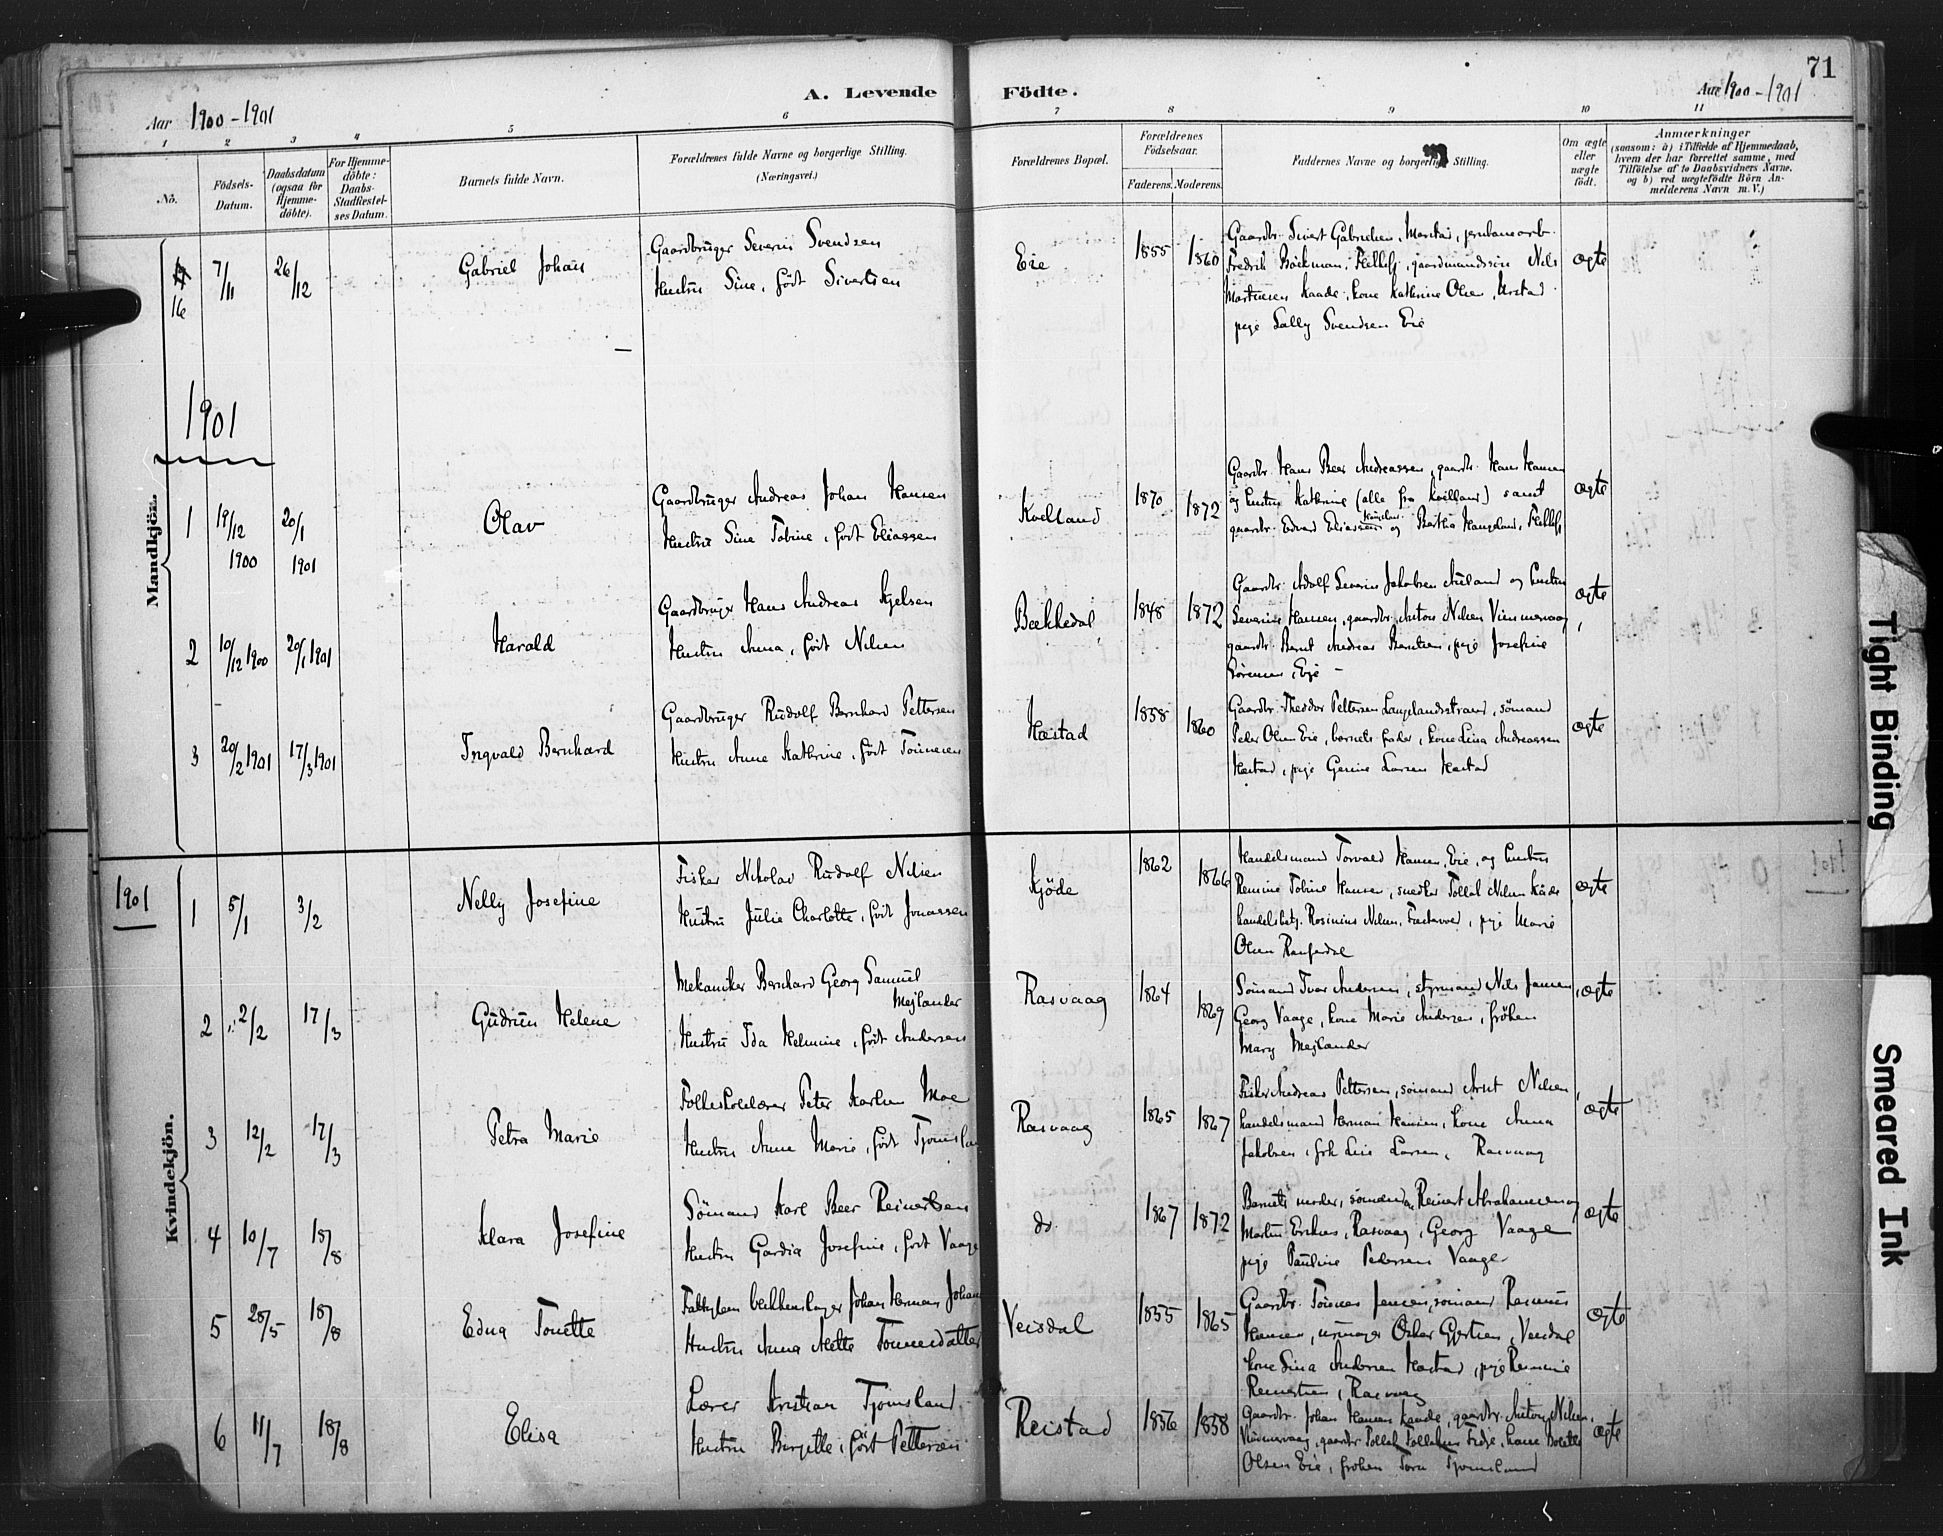 71
Aar 1900-1901
A. Levende Födte.
Aar 1900-1901
1 2 3 4 5 6 7 8 9 10 11
No.
Födsels-Datum.
Daabsdatum (ogsaa for Hjemme-döbte).
For Hjemme-döbte: Daabs-Stadfæstel-ses Datum.
Barnets fulde Navn.
Forældrenes fulde Navne og borgerlige Stilling.
(Næringsvei.)
Forældrenes Bopæl.
Forældrenes Födselsaar.
Faderens. Moderens.
Faddernes Navne og borgerlige Stilling.
Om ægte eller uægte födt.
Anmærkninger
(saasom: a) i Tilfælde af Hjemmedaab,
hvem der har forrettet samme, med
Tilföielse af to Daabsvidners Navne.
og b) ved uægtefödte Börn An-
melderens Navn m. V.)
Mandkjön.
16 7/11 26/12 Gabriel Johan
Gaardbruger Severin Svendsen
Hustru Sine, født Sivertsen
Eie 1855 1860
Gaardbr. Sivert Gabrielsen,
Fredrik Bäckman, Nils
Kaade, kone Kathrine Olsen,
pige Sally Svendsen Eie
ægte
1901
1 19/12 1900 20/1 1901 Olav
Gaardbruger Andreas Johan Hansen
Hustru Sine Tobine, født Eliassen
Kvelland 1870 1872
Gaardbr. Hans Beer Andreassen, gaardbr. Hans Hansen
og hustru Kathrine (alle fra Kvelland) samt
gaardbr. Edvard Eliassen og
ægte
2 10/12 1900 20/1 1901 Harald
Gaardbruger Hans Andreas
Hustru Anna, født Nilsen
Bækkedal 1848 1872
Gaardbr. Adolf Severin Jakobsen og hustru
Severine Hansen, gaardbr. Anton Nilsen
gaardbr. Bernt Andreas Berntsen, pige Josefine
Sörensen, Eie
ægte
3 20/2 1901 17/3 1901 Ingvald Bernhard
Gaardbruger Rudolf Bernhard Pettersen
Hustru Anne Kathrine, født Tönnesen
Hæstad 1858 1860
Gaardbr. Theodor Pettersen Langelandsstrand, sömand
Peder Olsen Eie, barnets fader, kone Lina Andreassen
Hæstad, pige Larsen Hæstad
ægte
Kvindekjön.
1901
1 5/1 3/2 Nelly Josefine
Fisker Nikolai Rudolf Nilsen
Hustru Julie Charlotte, født Jonassen
Kjöde 1862 1866
Handelsmand Torvald Hansen, Eie, og hustru
Tobine Hansen, Tollak Nilsen
handelsbetj. Rosinius Nilsen, pige Marie
Olsen
ægte
2 2/2 17/3 Gudrun Helene
Mekaniker Bernhard Georg Samuel
Mejlander
Hustru Ida Helmine, født Andersen
Rasvaag 1864 1869
Sömand Ivar Andersen, styrmand Nils Jansen,
Georg Vaage, kone Marie Andersen, fröken
Mary Mejlander
ægte
3 12/2 17/3 Petra Marie
Folkeskolelærer Peter Karlsen Moe
Hustru Anne Marie, født
Rasvaag 1865 1867
Fisker Andreas Pettersen, sömand Arnt Nilsen,
handelsmand Herman Hansen, kone Anna
Jakobsen, Larsen, Rasvaag
ægte
4 10/7 18/8 Klara Josefine
Sömand Karl Beer Reinertsen
Hustru Gardia Josefine, født Vaage
do 1867 1872
Barnets moder, Reinert Abrahamsen og
Martin Eriksen, Rasvaag, Georg Vaage
pige Pauline Pedersen Vaage
ægte
5 28/5 18/8 Edna Tonette
Johan Herman
Hustru Anna Mette Tönnesdatter
Veisdal 1855 1865
Gaardbr. Tönnes Jensen, sömand Rasmus
Hansen, urmager Oskar Gjertsen, Veisdal
kone Lina Andersen Hæstad, pige
Rasvaag
ægte
6 11/7 18/8 Elisa
Lærer Kristian Tjomsland
Hustru Birgitte, født Pettersen
Reistad 1856 1858
Gaardbr. Johan Hansen Kaade, gaardbr. Anton Nilsen,
gaardbr Tollak Tollaksen
Olsen Eie, fröken Tora Tjomsland
ægte
Tight Binding
Smeared Ink